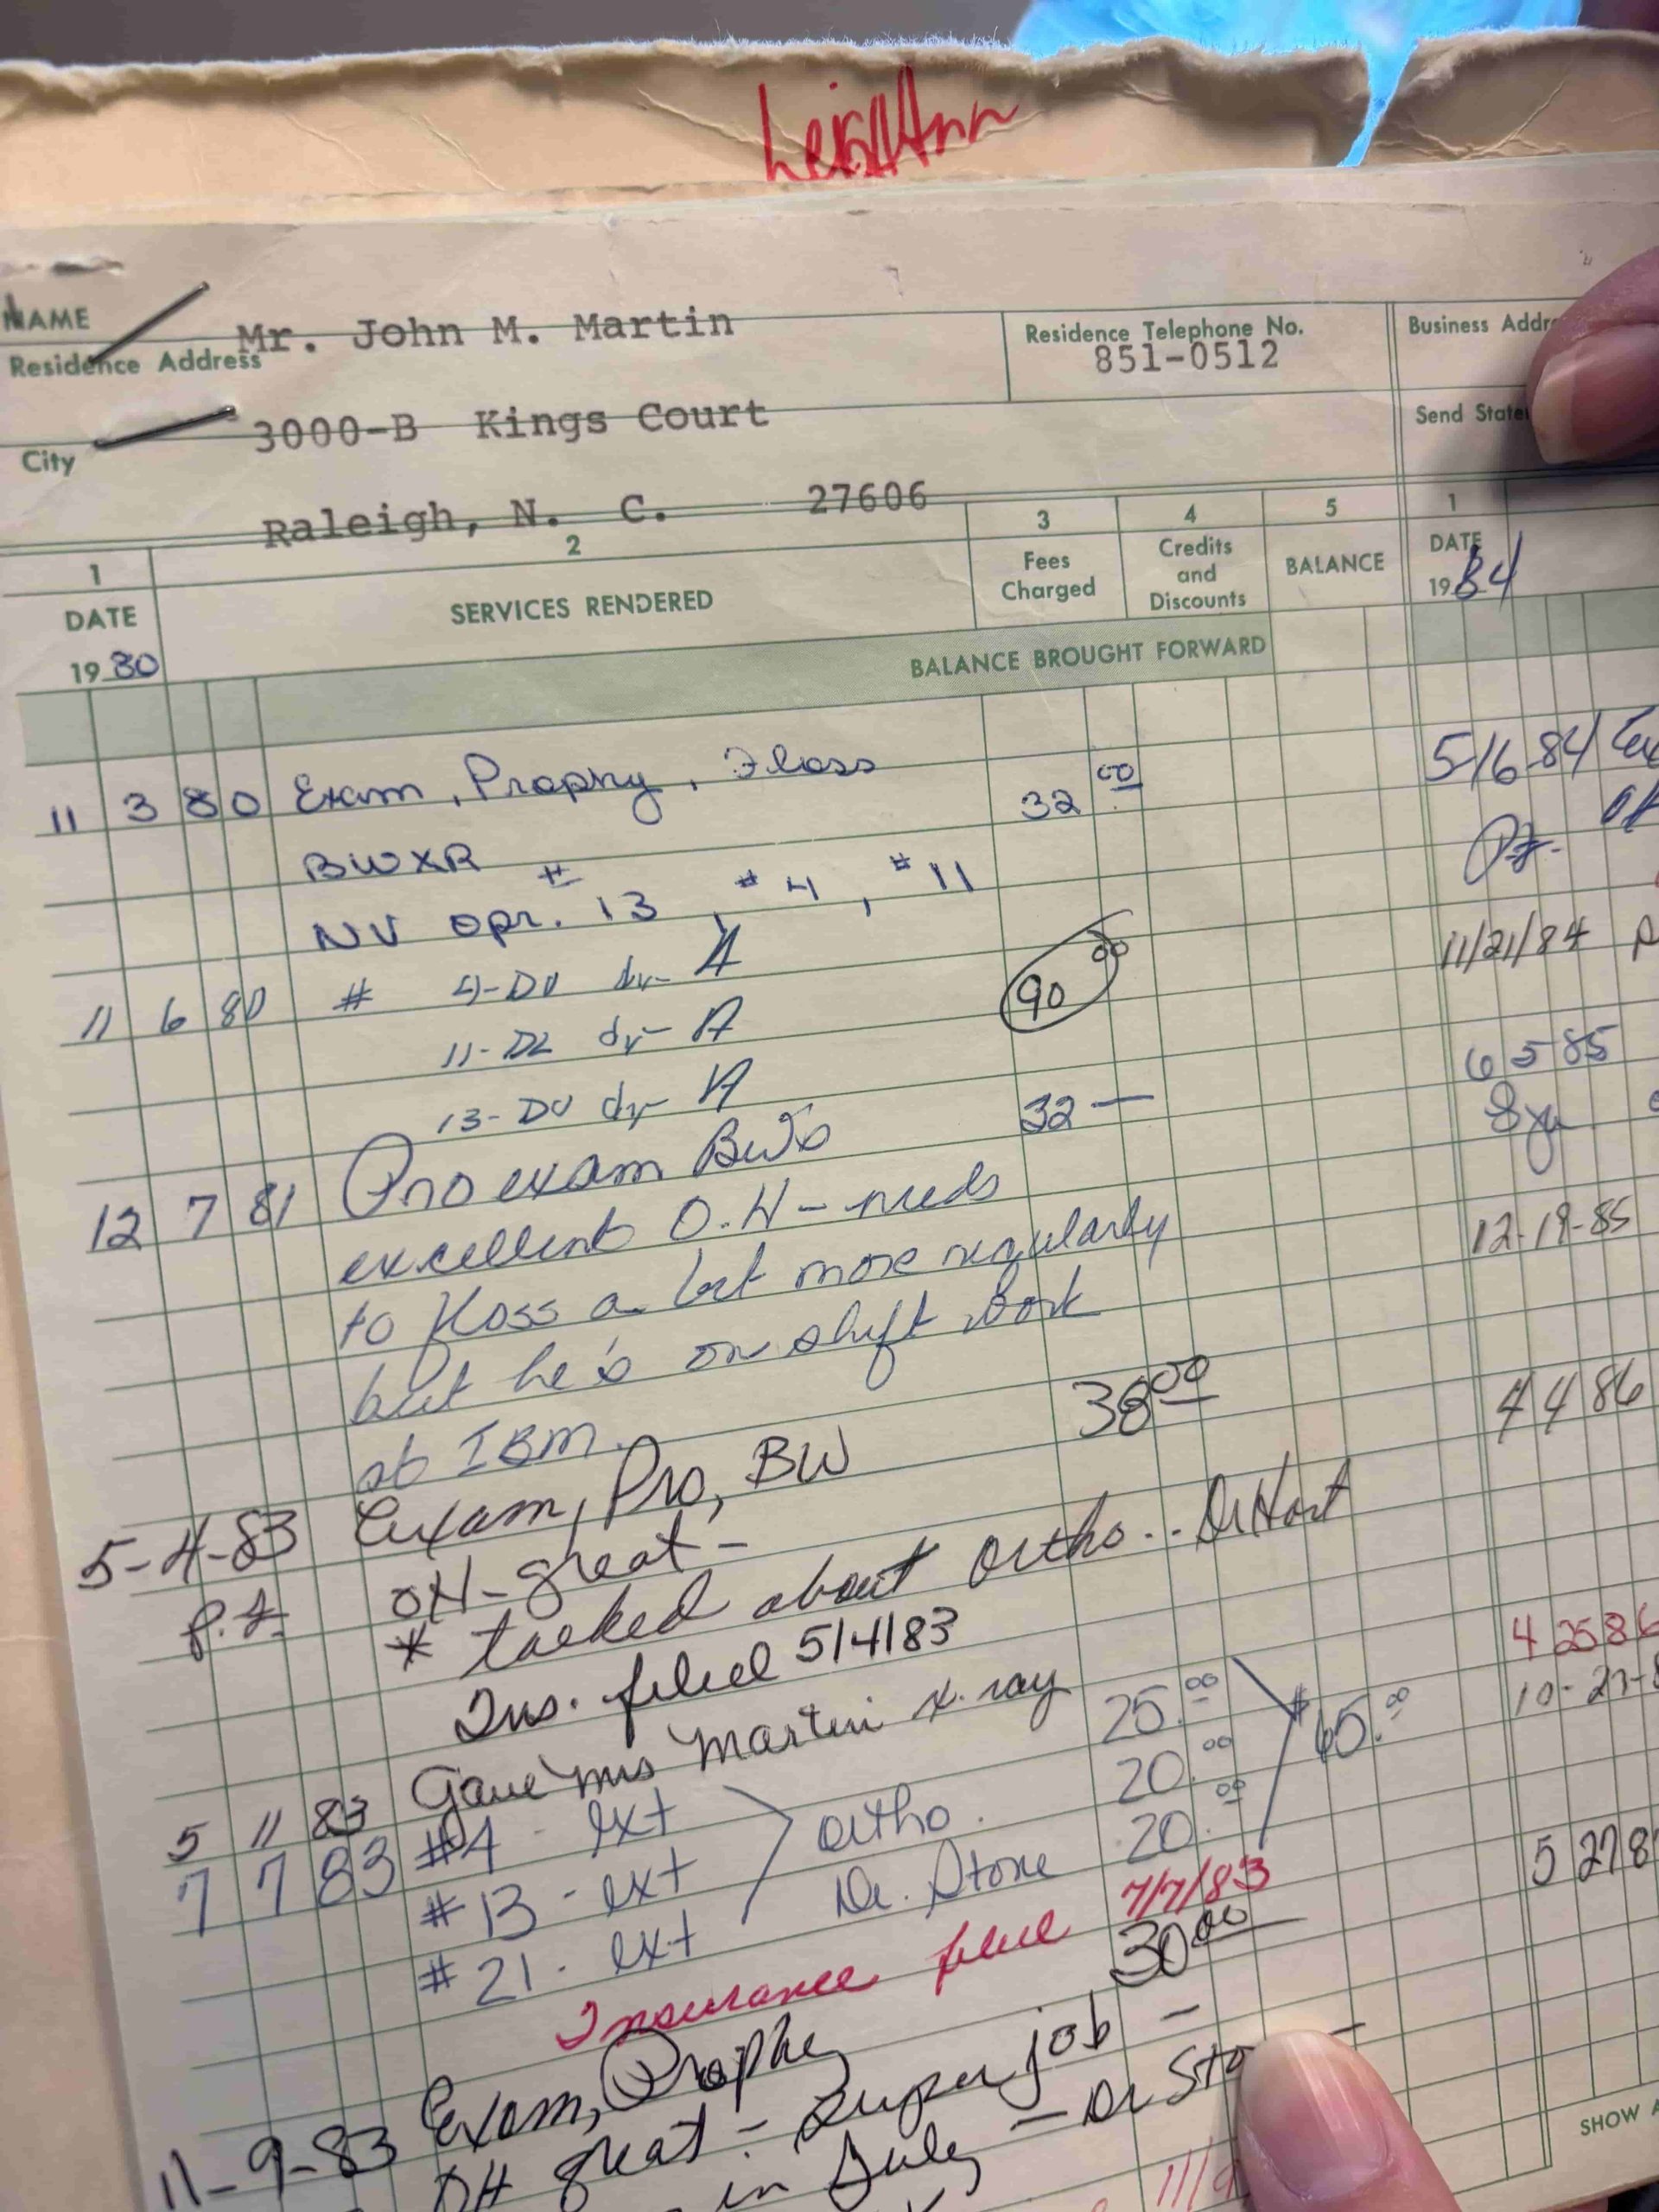 LeighAnn
NAME
Mr. John M. Martin
Residence Telephone No.
851-0512
Business Addr
Residence Address
3000-B Kings Court
Send State
City
Raleigh, N. C. 27606
1 2 3 4 5 1
DATE SERVICES RENDERED Fees Charged Credits and Discounts BALANCE DATE
1980
1984
BALANCE BROUGHT FORWARD
11 3 80 Exam, Prophy, Floss 32 00
BWXR
NV opr. #13, #4, #11
11 6 80 # 4-DO dy- A 90 00
11-DL dy- A
13-DO dy- A
12 7 81 Pro exam BW's 32 —
excellent O.H - needs
to floss a bit more regularly
but he's on shift work
at IBM.
5-4-83 Exam, Pro, BW 38 00
OH-great -
* talked about ortho.. Dr Hart
Ins. filed 5/4/83
5 11 83 Gave Mrs Martin x-ray
7 7 83 #4 - ext 25.00
#13 - ext ortho. 20.00 $65.00
#21. ext Dr. Stone 20.00
Insurance filed 7/7/83
11-9-83 Exam, Prophy 30 00
OH great - super job -
in July - Dr Sto
5/16 84
11/21/84
6 5 85
12-19-85
4 4 86
4 25 86
10-27-8
5 27 8
SHOW A